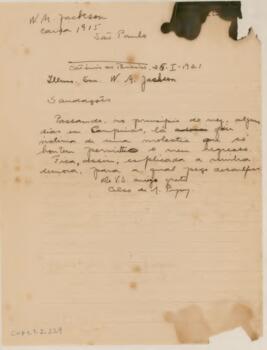 W. M. Jackson
caixa 1915
São Paulo
25-I-1921
Illmo. Snr. W. M. Jackson
Saudações
Passando, no principio do mez, alguns
dias em Campinas, lá
victima de uma molestia que só
hontem permittiu o meu regresso.
Fica, assim, explicada a minha
demora, para a qual peço desculpas.
De V.S. amigo grato
Celso de